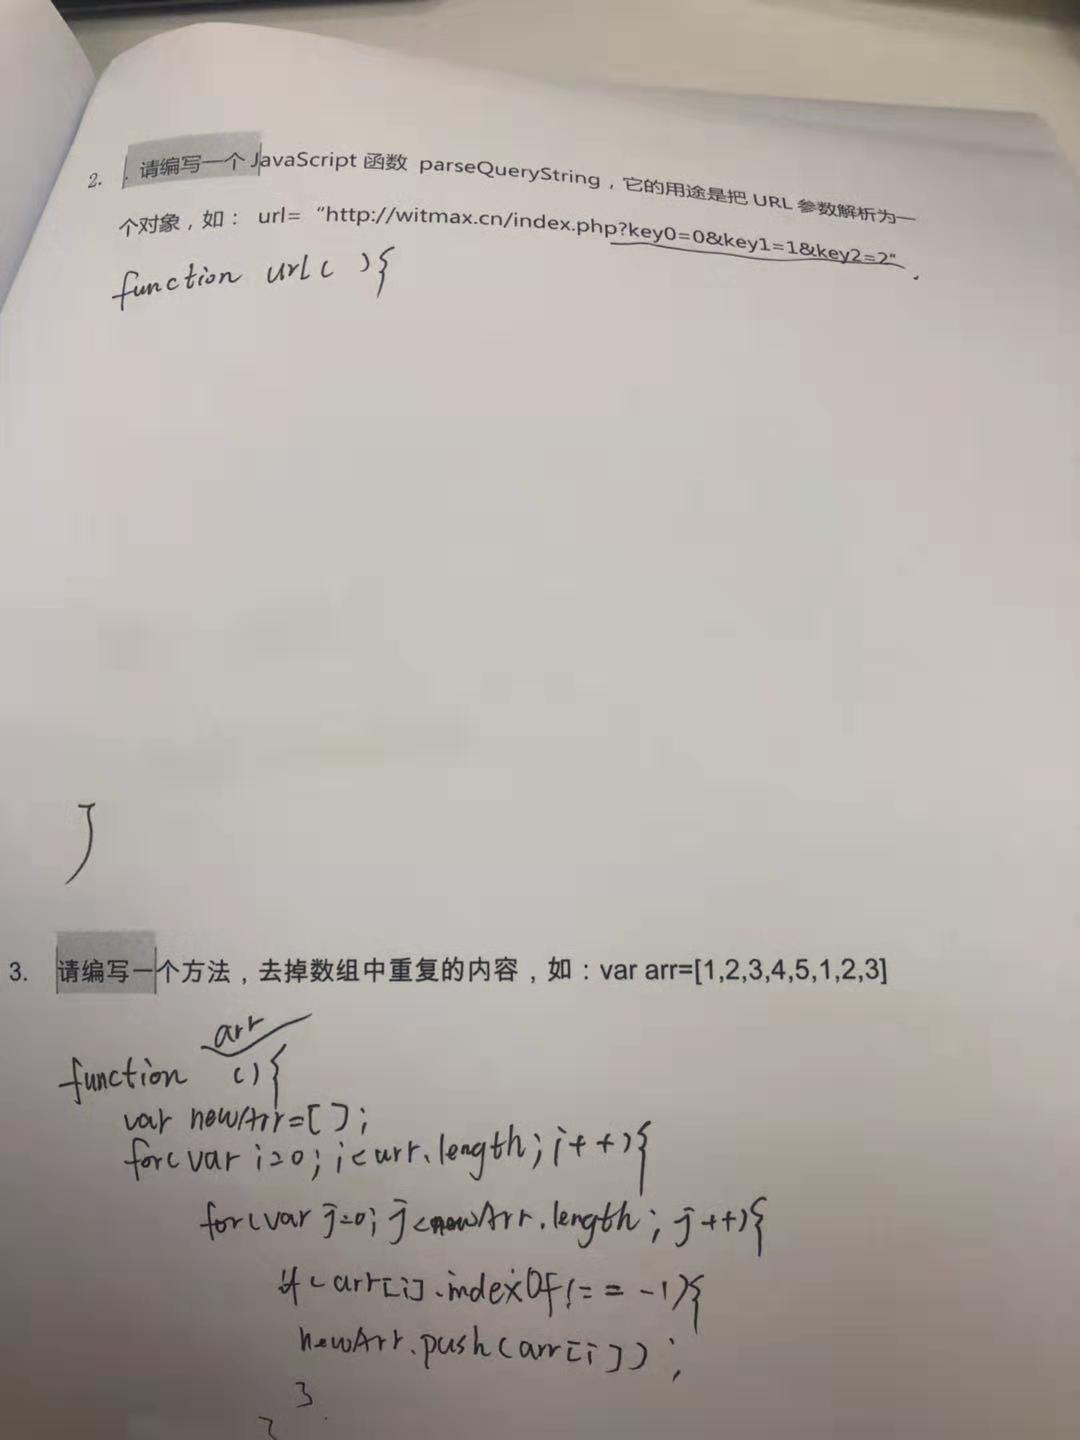 2. . 请编写一个 JavaScript 函数 parseQueryString，它的用途是把 URL 参数解析为一
个对象，如： url= “http://witmax.cn/index.php?key0=0&key1=1&key2=2"
function url( ){
}
3. 请编写一个方法，去掉数组中重复的内容，如：var arr=[1,2,3,4,5,1,2,3]
arr
function (){
var newArr=[];
for(var i=0; i<arr.length; i++){
for(var j=0; j<newArr.length; j++){
if(arr[i].indexOf!==-1){
newArr.push(arr[i]);
}
}